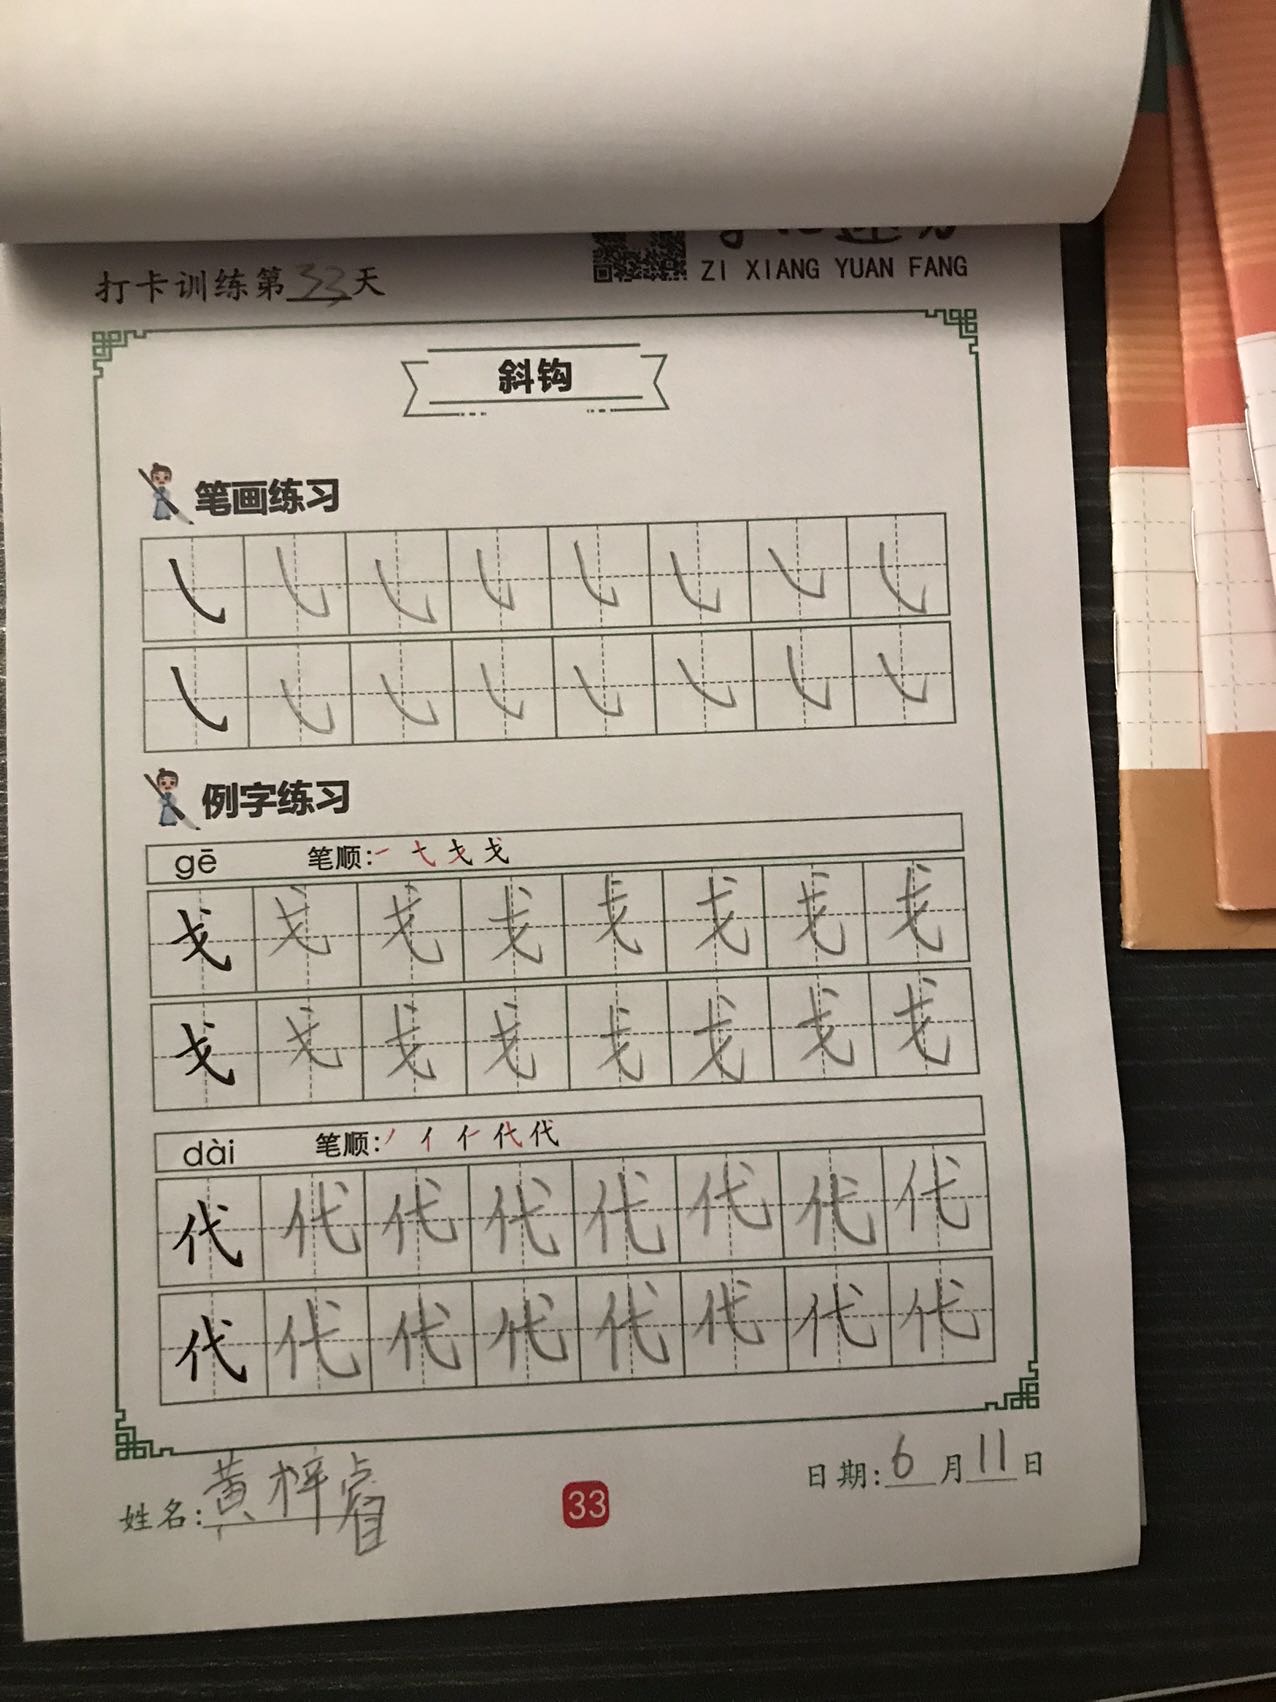 ZI XIANG YUAN FANG
打卡训练第33天
斜钩
笔画练习
㇂ ㇂ ㇂ ㇂ ㇂ ㇂ ㇂ ㇂
㇂ ㇂ ㇂ ㇂ ㇂ ㇂ ㇂ ㇂
例字练习
gē 笔顺: 一 弋 戈 戈
戈 戈 戈 戈 戈 戈 戈 戈
戈 戈 戈 戈 戈 戈 戈 戈
dài 笔顺: 丿 亻 仁 代 代
代 代 代 代 代 代 代 代
代 代 代 代 代 代 代 代
姓名:黄梓睿
33
日期:6月11日